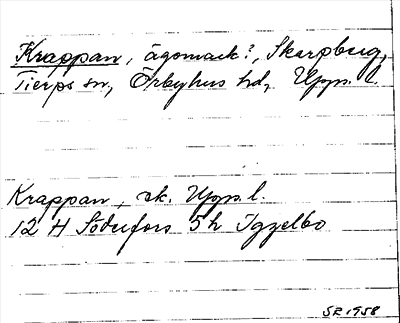 Krappan, ägomark?, Skarpberg,
Tierps sn, Örbyhus hd, Upps. l.
Krappan, ek. Upps. l.
12 H Söderfors 5 h Iggelbo
SR 1958